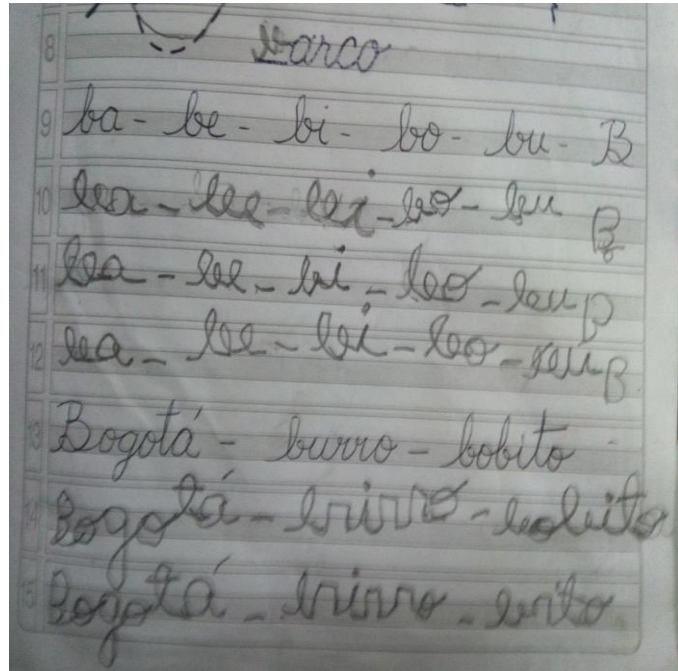 8 barco
9 ba - be - bi - bo - bu - B
10 ba - be - bi - bo - bu B
11 ba - be - bi - bo - bu B
12 ba - be - bi - bo - bu B
13 Bogotá - burro - bobito
14 Bogotá - burro - bobito
15 Bogotá - burro -